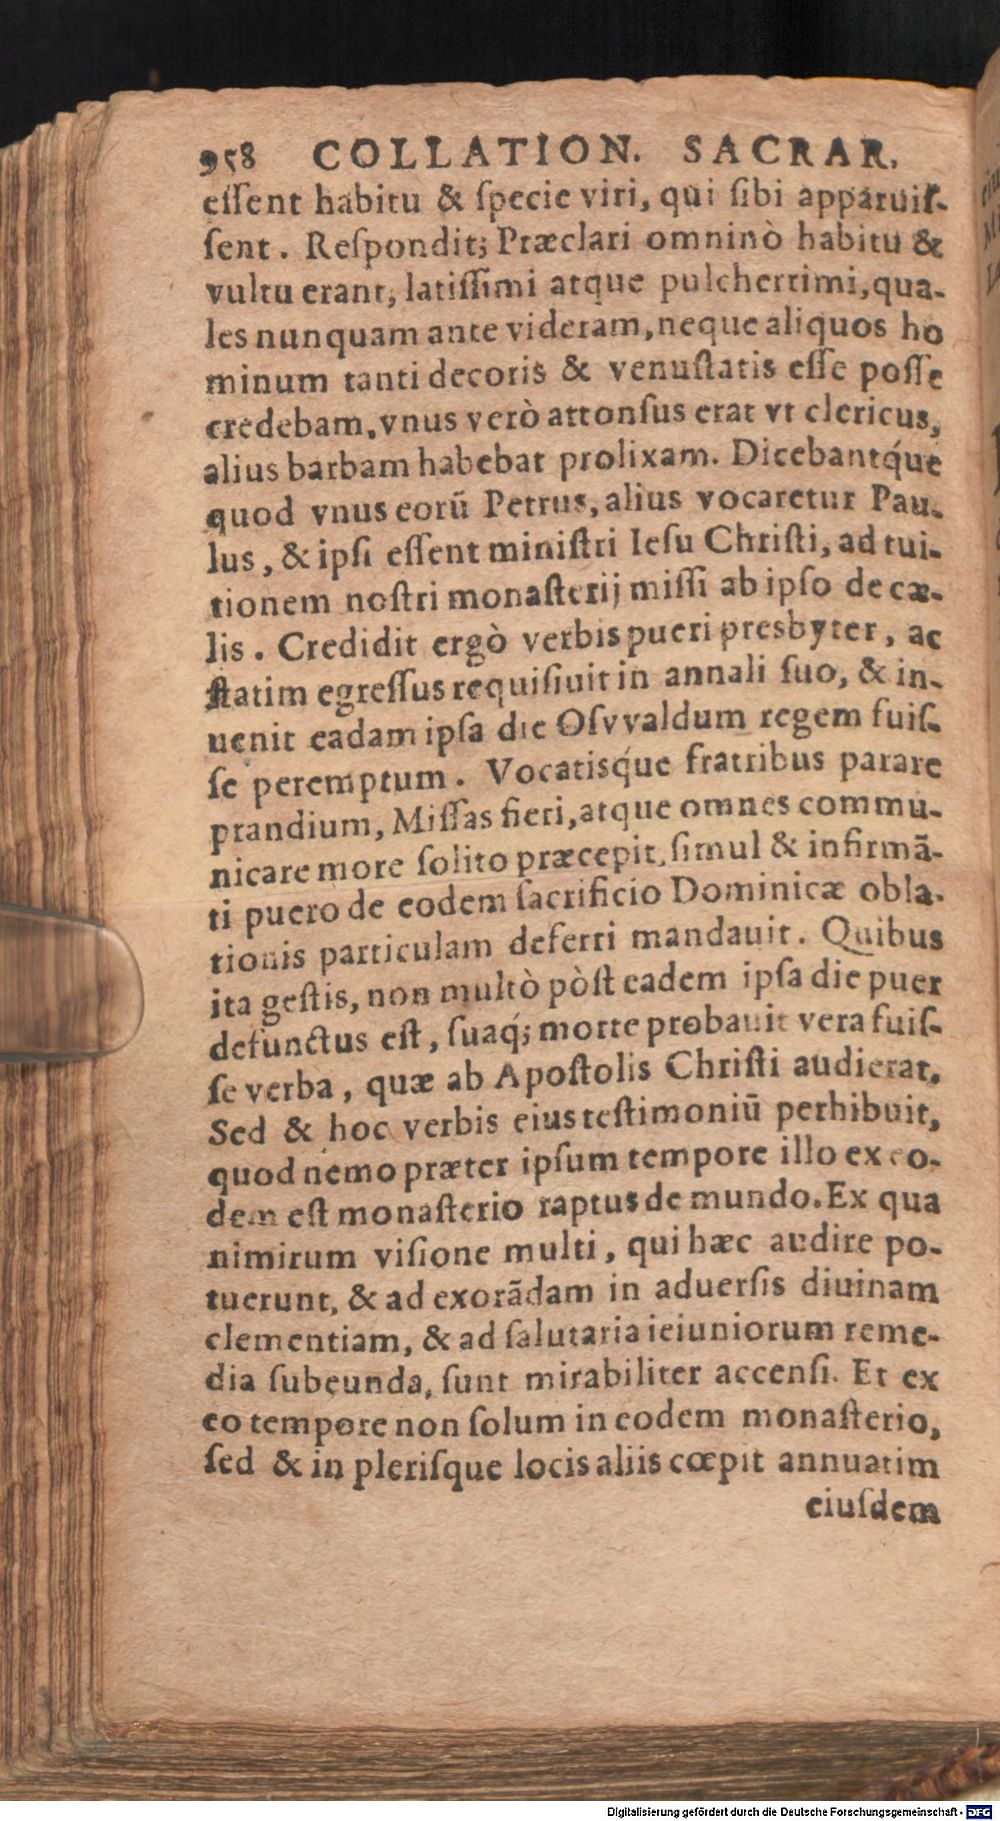 958 COLLATION. SACRAR.
eſſent habitu & ſpecie viri, qui ſibi apparuiſ-
ſent. Reſpondit; Præclari omninò habitu &
vultu erant, latiſſimi atque pulcherrimi, qua-
les nunquam ante videram, neque aliquos ho
minum tanti decoris & venuſtatis eſſe poſſe
credebam, vnus verò attonſus erat vt clericus,
alius barbam habebat prolixam. Dicebantq́ue
quod vnus eorū Petrus, alius vocaretur Pau-
lus, & ipſi eſſent miniſtri Ieſu Chriſti, ad tui-
tionem noſtri monaſterij miſſi ab ipſo de cæ-
lis. Credidit ergò verbis pueri presbyter, ac
ſtatim egreſſus requiſiuit in annali ſuo, & in-
uenit eadam ipſa die Oſvvaldum regem fuiſ-
ſe peremptum. Vocatisq́ue fratribus parare
prandium, Miſſas fieri, atque omnes commu-
nicare more ſolito præcepit, ſimul & infirmā-
ti puero de eodem ſacrificio Dominicæ obla-
tionis particulam deferri mandauit. Quibus
ita geſtis, non multò pòſt eadem ipſa die puer
defunctus eſt, ſuaq́; morte probauit vera fuiſ-
ſe verba, quæ ab Apoſtolis Chriſti audierat.
Sed & hoc verbis eius teſtimoniū perhibuit,
quod nemo præter ipſum tempore illo ex eo-
dem eſt monaſterio raptus de mundo. Ex qua
nimirum viſione multi, qui hæc audire po-
tuerunt, & ad exorādam in aduerſis diuinam
clementiam, & ad ſalutaria ieiuniorum reme-
dia ſubeunda, ſunt mirabiliter accenſi. Et ex
eo tempore non ſolum in eodem monaſterio,
ſed & in pleriſque locis aliis cœpit annuatim
eiuſdem
Digitalisierung gefördert durch die Deutsche Forschungsgemeinschaft - DFG